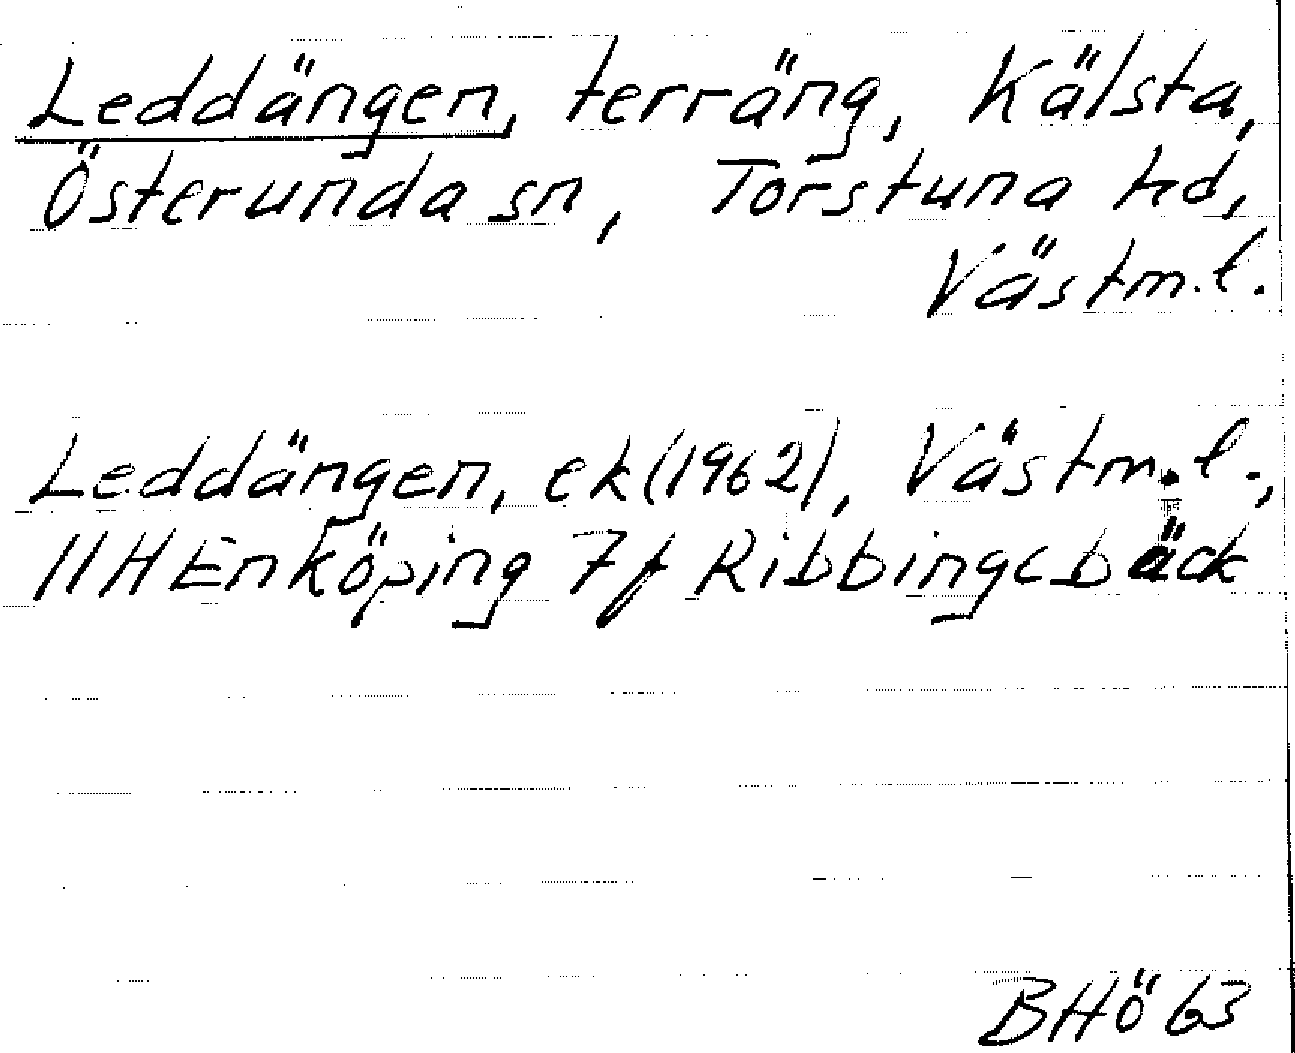 Leddängen, terräng, Kälsta,
Österunda sn, Torstuna hd,
Västm.l.
Leddängen, ek (1962), Västm.l.,
11H Enköping 7f Ribbingsbäck
BHö 63